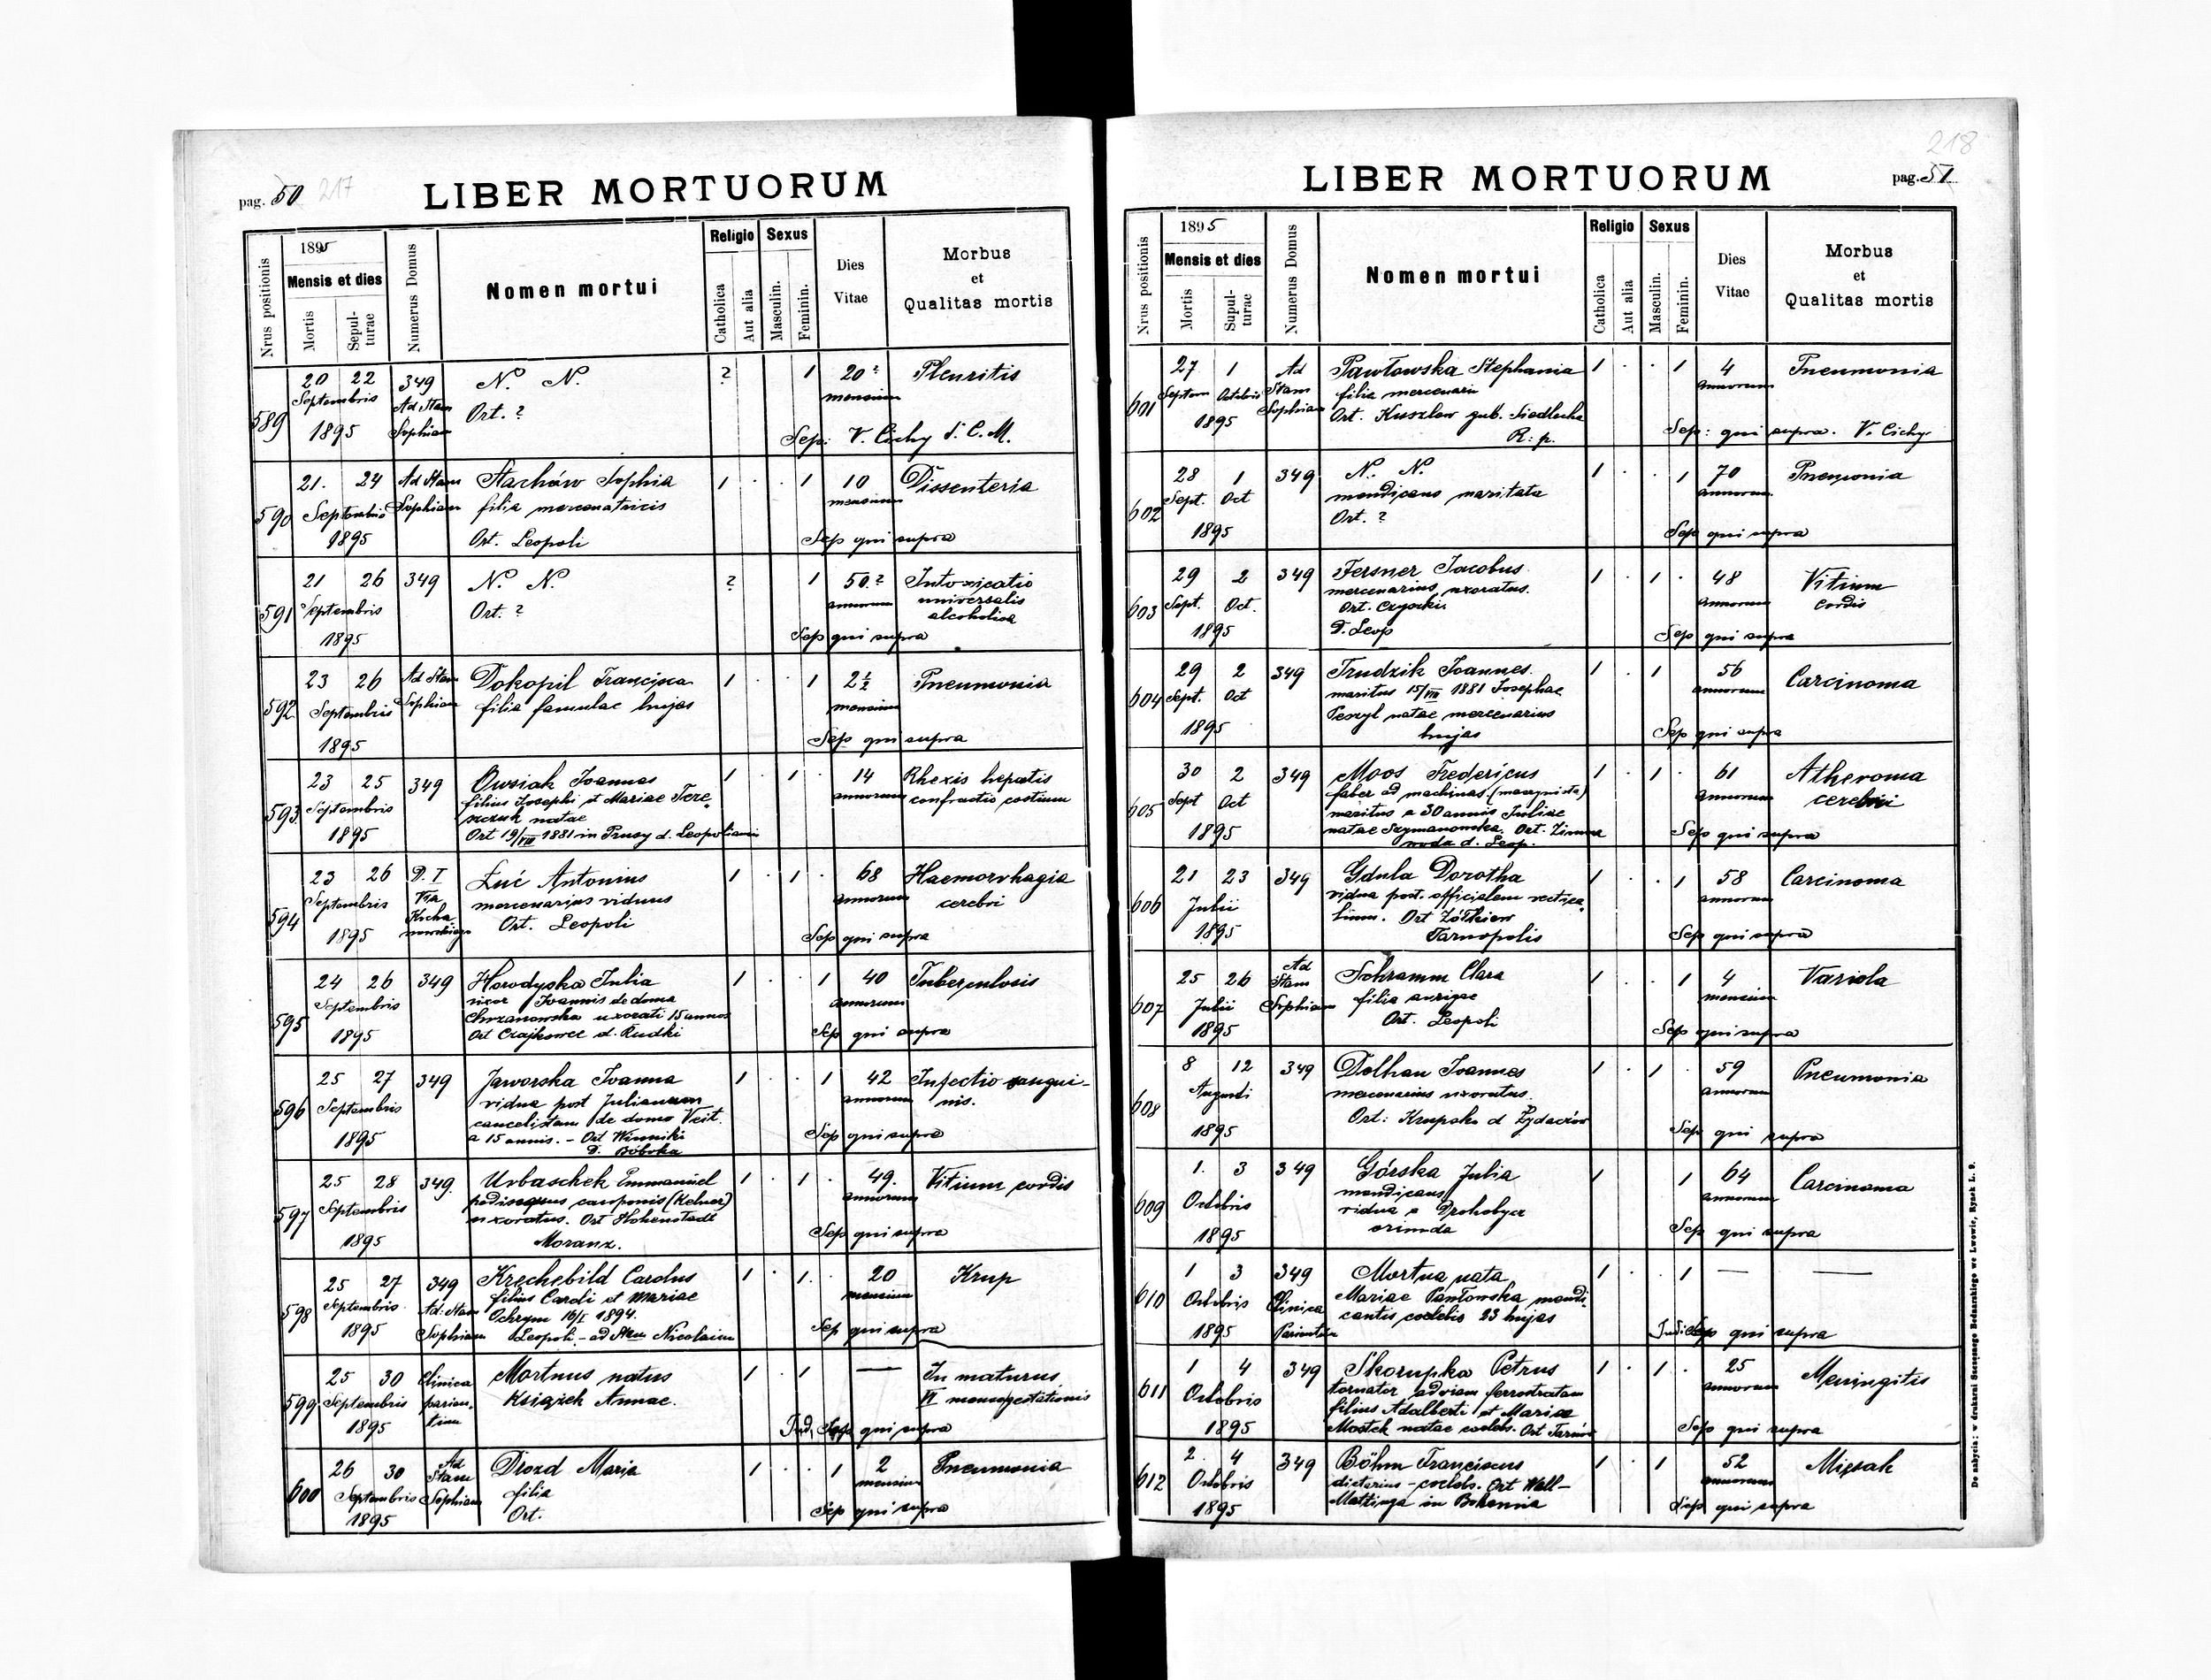 pag. 50 217
LIBER MORTUORUM
Nrus positionis
1895
Mensis et dies
Mortis
Sepul-turae
Numerus Domus
Nomen mortui
Religio
Catholica
Aut alia
Sexus
Masculin.
Feminin.
Dies Vitae
Morbus et Qualitas mortis
589 20 22 349 N. N. ? 1 20? Pleuritis
Septembris Ad Stam mensium
1895 Sophiam Ort. ?
Sep: V. Cichy S. C. M.
590 21. 24 Ad Stam Stachów Sophia 1 . . 1 10 Dissenteria
Septembris Sophiam filia mercenatricis mensium
1895 Ort. Leopoli Sep qui supra
591 21 26 349 N. N. ? 1 50? Intoxicatio
Septembris Ort. ? annorum universalis
alcoholica
1895 Sep qui supra
592 23 26 Ad Stam Dokopil Francisca 1 . . 1 2½ Pneumonia
Septembris Sophiam filia famulae hujas mensium
1895 Sep qui supra
593 23 25 349 Owsiak Joannes 1 . 1 . 14 Rhexis hepatis
Septembris filius Josephi et Mariae Tere annorum confractio costium
szczuk natae
1895 Ort 19/VIII 1881 in Prusy d. Leopoliensi
594 23 26 D. I Łuć Antonius 1 . 1 . 68 Haemorrhagia
Septembris Via mercenarius viduus annorum cerebri
Kocha
1895 nowskiego Ort. Leopoli Sep qui supra
595 24 26 349 Horodyska Julia 1 . . 1 40 Tuberculosis
Septembris uxor Joannis de domo annorum
Chrzanowska uxorati 15 annos
1895 Ort Czajkowce d. Rudki Sep qui supra
596 25 27 349 Jaworska Joanna 1 . . 1 42 Infectio sangui-
Septembris vidua post Julianum annorum nis.
cancelistam de domo Veit.
1895 a 15 annis. - Ort Winniki Sep qui supra
D. Bóbrka
597 25 28 349. Urbaschek Emmanuel 1 . 1 . 49. Vitium cordis
Septembris pedissequus cauponis (Kelner) annorum
uxoratus. Ort Hohenstadt
1895 Moranz. Sep qui supra
598 25 27 349 Krechebild Carolus 1 . 1. 20 Krup
Septembris Ad Stam filius Caroli et Mariae mensium
Ochrym 16/I 1894.
1895 Sophiam Leopoli - ad Stum Nicolaum Sep qui supra
599 25 30 Clinica Mortuus natus 1 . 1 — In maturus
Septembris parien- Książek Annae. VI mensis gestationis
1895 tium Ind. Sep qui supra
600 26 30 Ad Stam Drozd Maria 1 . . 1 2 Pneumonia
Septembris Sophiam filia mensium
1895 Ort. Sep qui supra
218
LIBER MORTUORUM
pag. 51
Nrus positionis
1895
Mensis et dies
Mortis
Supul-turae
Numerus Domus
Nomen mortui
Religio
Catholica
Aut alia
Sexus
Masculin.
Feminin.
Dies Vitae
Morbus et Qualitas mortis
601 27 1 Ad Pawłowska Stephania 1 . . 1 4 Pneumonia
Septem Octobris Stam filia mercenarii annorum
1895 Sophiam Ort. Kuszlow gub. Siedlecka
R: p. Sep: qui supra. V. Cichy
602 28 1 349 N. N. 1 . . 1 70 Pneumonia
Sept. Oct mendicans maritata annorum
Ort. ?
1895 Sep qui supra
603 29 2 349 Fersner Jacobus 1 . 1 . 48 Vitium
Sept. Oct. mercenarius, uxoratus. annorum cordis
Ort. Czyszki
1895 D. Leop Sep qui supra
604 29 2 349 Trudzik Joannes 1 . 1 56 Carcinoma
Sept. Oct maritus 15/VIII 1881 Josephae annorum
Peszyl natae mercenarius
1895 hujas Sep qui supra
605 30 2 349 Moos Fredericus 1 . 1 . 61 Atheroma
Sept Oct faber ad machinas annorum cerebri
maritus a 30 annis Juliae
1895 natae Szymanowska. Ort. Zimna Sep qui supra
woda d. Leop.
606 21 23 349 Gdula Dorotha 1 . . 1 58 Carcinoma
Julii vidua post. officialem vectiga annorum
lium. Ort Żółkiew
1895 Tarnopolis Sep qui supra
607 25 26 Ad Stam Schramm Clara 1 . . 1 4 Variola
Julii Sophiam filia aurigae mensium
1895 Ort. Leopoli Sep qui supra
608 8 12 349 Dolhan Joannes 1 . 1 . 59 Pneumonia
Augusti mercenarius uxoratus. annorum
1895 Ort: Krupsko d Żydaczów Sep qui supra
609 1. 3 349 Górska Julia 1 1 64 Carcinoma
Octobris mendicans annorum
vidua e Drohobycz
1895 oriunda Sep qui supra
610 1 3 349 Mortua nata 1 . 1 — —
Octobris Clinica Mariae Pawłowska mendi.
cantis coelebis 23 hujas
1895 Parientium Sep qui supra
611 1 4 349 Skorupka Petrus 1 . 1 . 25 Meningitis
Octobris tornator ad viam ferrostratam annorum
filius Adalberti et Mariae
1895 Mostek natae coelebs. Ort Tarnów Sep qui supra
612 2 4 349 Böhm Franciscus 1 . 1 52 Miąsak
Octobris dietarius - coelebs. Ort Woll- annorum
1895 Mattinga in Bohemia Sep qui supra
Do nabycia: w drukarni Szczęsnego Bednarskiego we Lwowie, Rynek L. 9.